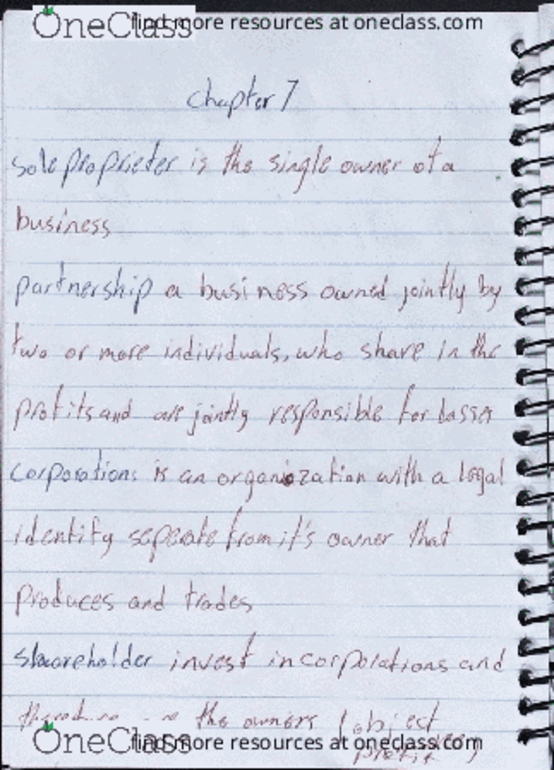 OneClass find more resources at oneclass.com
chapter 7
sole proprieter is the single owner of a
business
partnership a business owned jointly by
two or more individuals, who share in the
profits and are jointly responsible for losses
corporations is an organization with a legal
identify seperate from it's owner that
produces and trades
shareholder invest in corporations and
the owners object
OneClass find more resources at oneclass.com